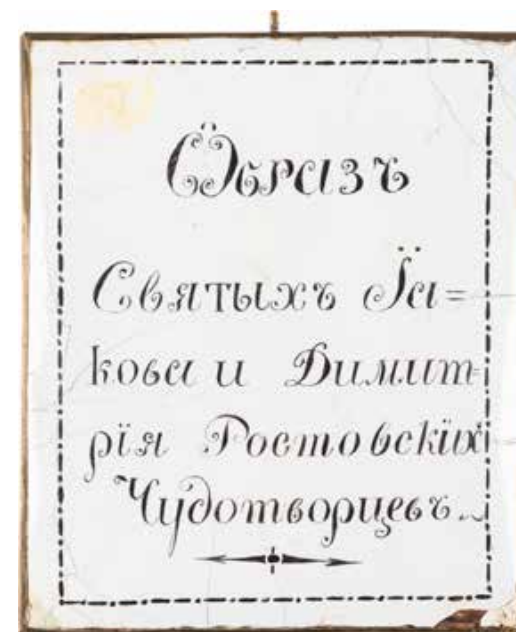 Образъ
Святыхъ Їа=
кова и Димит=
рїя Ростовскихъ
Чудотворцевъ.